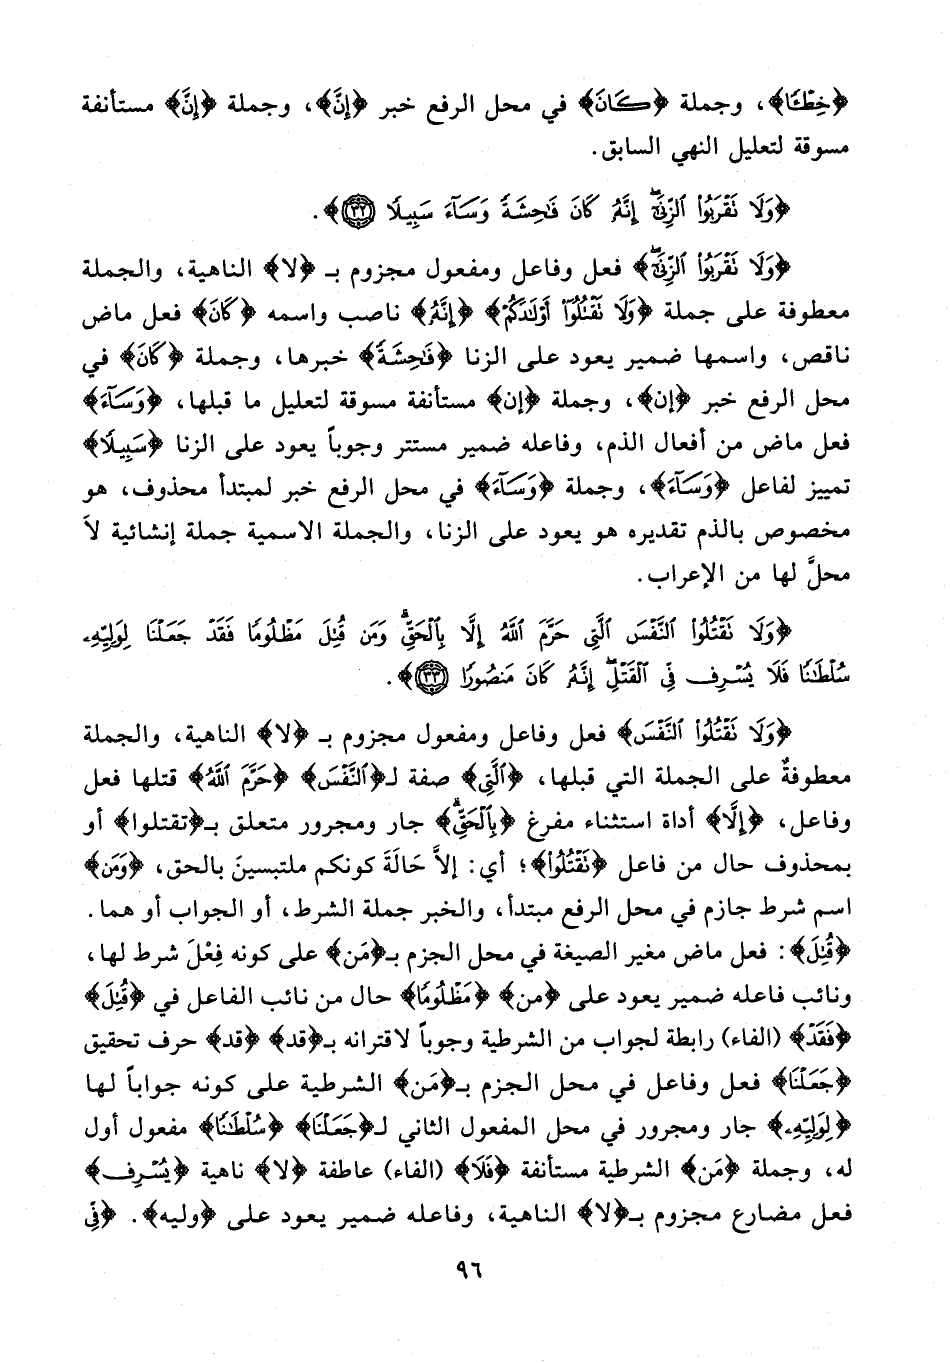 ﴿خِطْـًٔا﴾، وجملة ﴿كَانَ﴾ في محل الرفع خبر ﴿إِنَّ﴾، وجملة ﴿إِنَّ﴾ مستأنفة
مسوقة لتعليل النهي السابق.
﴿وَلَا نَقْرَبُوا۟ ٱلزِّنَىٰٓ ۖ إِنَّهُۥ كَانَ فَـٰحِشَةً وَسَآءَ سَبِيلًا ٣٢﴾.
﴿وَلَا نَقْرَبُوا۟ ٱلزِّنَىٰٓ ۖ﴾ فعل وفاعل ومفعول مجزوم بـ ﴿لا﴾ الناهية، والجملة
معطوفة على جملة ﴿وَلَا نَقْتُلُوٓا۟ أَوْلَـٰدَكُمْ﴾ ﴿إِنَّهُۥ﴾ ناصب واسمه ﴿كَانَ﴾ فعل ماض
ناقص، واسمها ضمير يعود على الزنا ﴿فَـٰحِشَةً﴾ خبرها، وجملة ﴿كَانَ﴾ في
محل الرفع خبر ﴿إن﴾، وجملة ﴿إن﴾ مستأنفة مسوقة لتعليل ما قبلها، ﴿وَسَآءَ﴾
فعل ماض من أفعال الذم، وفاعله ضمير مستتر وجوباً يعود على الزنا ﴿سَبِيلًا﴾
تمييز لفاعل ﴿وَسَآءَ﴾، وجملة ﴿وَسَآءَ﴾ في محل الرفع خبر لمبتدأ محذوف، هو
مخصوص بالذم تقديره هو يعود على الزنا، والجملة الاسمية جملة إنشائية لاَ
محلَّ لها من الإعراب.
﴿وَلَا نَقْتُلُوا۟ ٱلنَّفْسَ ٱلَّتِى حَرَّمَ ٱللَّهُ إِلَّا بِٱلْحَقِّ ۗ وَمَن قُتِلَ مَظْلُومًا فَقَدْ جَعَلْنَا لِوَلِيِّهِۦ
سُلْطَـٰنًا فَلَا يُسْرِف فِّى ٱلْقَتْلِ ۖ إِنَّهُۥ كَانَ مَنصُورًا ٣٣﴾.
﴿وَلَا نَقْتُلُوا۟ ٱلنَّفْسَ﴾ فعل وفاعل ومفعول مجزوم بـ ﴿لا﴾ الناهية، والجملة
معطوفةٌ على الجملة التي قبلها، ﴿ٱلَّتِى﴾ صفة لـ﴿ٱلنَّفْسَ﴾ ﴿حَرَّمَ ٱللَّهُ﴾ قتلها فعل
وفاعل، ﴿إِلَّا﴾ أداة استثناء مفرغ ﴿بِٱلْحَقِّ ۗ﴾ جار ومجرور متعلق بـ﴿تقتلوا﴾ أو
بمحذوف حال من فاعل ﴿نَقْتُلُوا۟﴾؛ أي: إلاَّ حَالَةَ كونكم ملتبسينَ بالحق، ﴿وَمَن﴾
اسم شرط جازم في محل الرفع مبتدأ، والخبر جملة الشرط، أو الجواب أو هما.
﴿قُتِلَ﴾: فعل ماض مغير الصيغة في محل الجزم بـ﴿مَن﴾ على كونه فِعْلَ شرط لها،
ونائب فاعله ضمير يعود على ﴿من﴾ ﴿مَظْلُومًا﴾ حال من نائب الفاعل في ﴿قُتِلَ﴾
﴿فَقَدْ﴾ (الفاء) رابطة لجواب من الشرطية وجوباً لاقترانه بـ﴿قد﴾ ﴿قد﴾ حرف تحقيق
﴿جَعَلْنَا﴾ فعل وفاعل في محل الجزم بـ﴿مَن﴾ الشرطية على كونه جواباً لها
﴿لِوَلِيِّهِۦ﴾ جار ومجرور في محل المفعول الثاني لـ﴿جَعَلْنَا﴾ ﴿سُلْطَـٰنًا﴾ مفعول أول
له، وجملة ﴿مَن﴾ الشرطية مستأنفة ﴿فَلَا﴾ (الفاء) عاطفة ﴿لا﴾ ناهية ﴿يُسْرِف﴾
فعل مضارع مجزوم بـ﴿لا﴾ الناهية، وفاعله ضمير يعود على ﴿وليه﴾. ﴿فِّى
٩٦